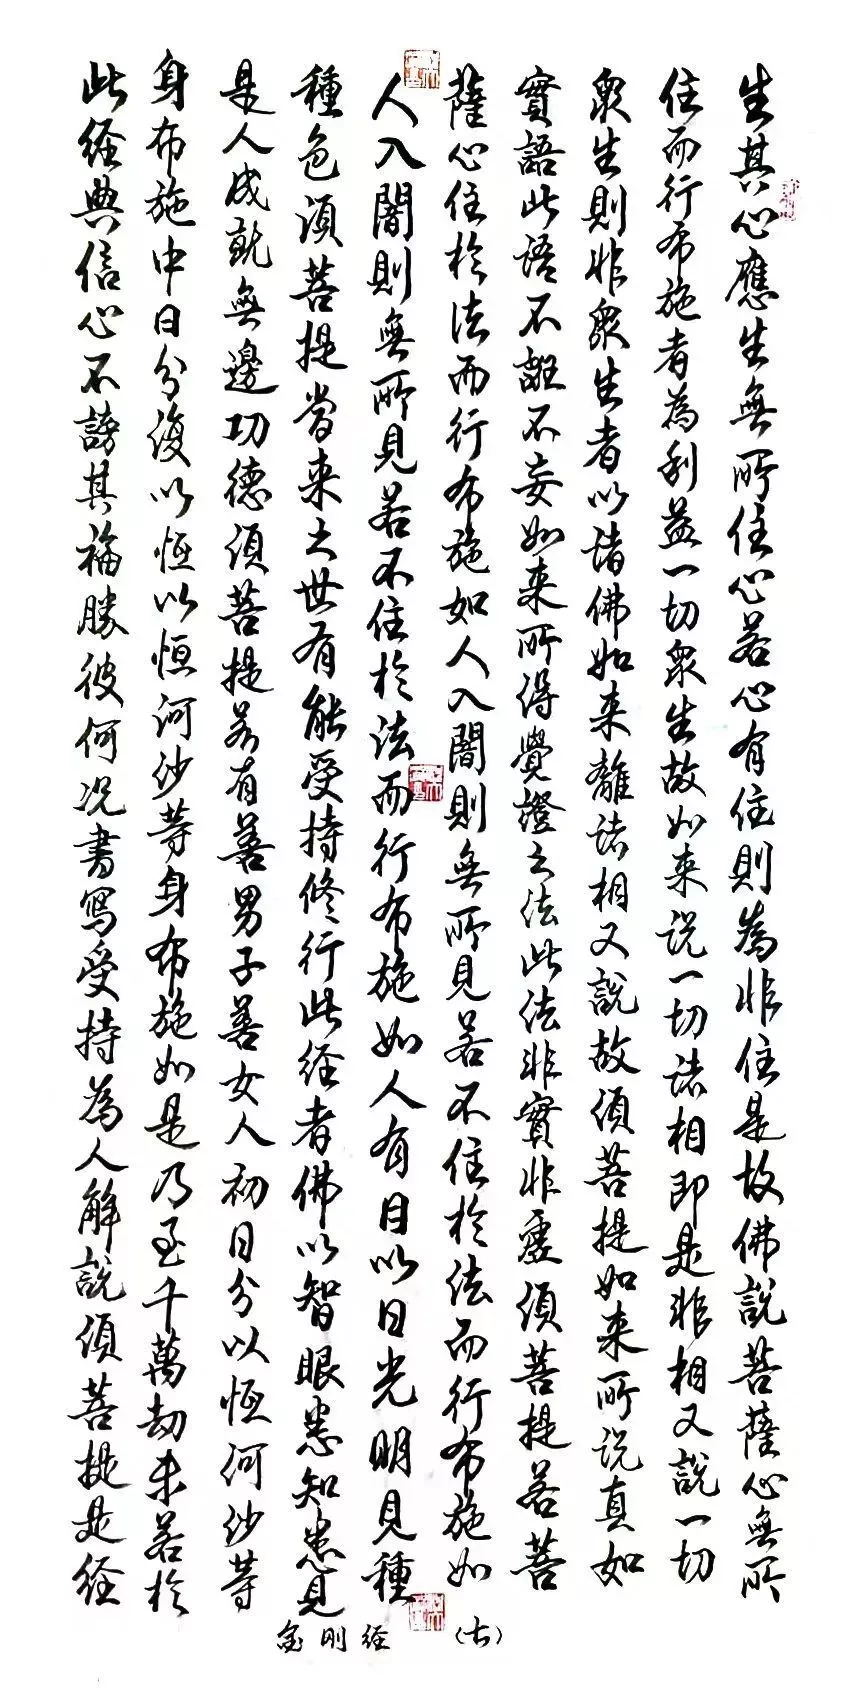 生其心應生無所住心若心有住則為非住是故佛說菩薩心無所
住而行布施者為利益一切眾生故如来说一切諸相即是非相又說一切
眾生則非眾生者以諸佛如来離諸相又說故須菩提如来所说真如
實語此語不誑不妄如来所得覺證之法此法非實非虛須菩提若菩
薩心住於法而行布施如人入闇則無所見若不住於法而行布施如
人入闇則無所見若不住於法而行布施如人有目以日光明見種
種色須菩提當来之世有能受持修行此经者佛以智眼悉知悉見
是人成就無邊功德須菩提若有善男子善女人初日分以恒河沙等
身布施中日分復以恒以恒河沙等身布施如是乃至千萬劫未若於
此经典信心不謗其福勝彼何况書寫受持為人解說須菩提是经
金刚经 （七）